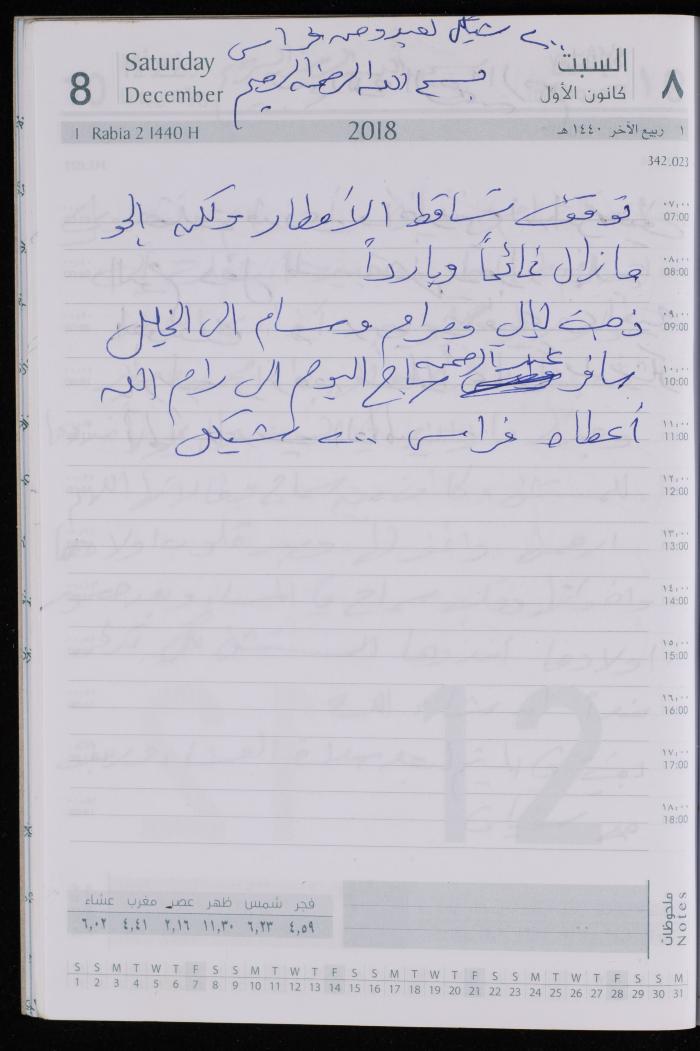 ٢٠٠ شيكل لعبد من فراس
8 Saturday December
السبت ٨ كانون الأول
بسم الله الرحمن الرحيم
1 Rabia 2 1440 H 2018 ١ ربيع الآخر ١٤٤٠ هـ
342.023
توقف تساقط الأمطار ولكن الجو
٠٧,٠٠ 07:00
ما زال غائماً وبارداً
٠٨,٠٠ 08:00
ذهبت ليالي ومرام وسام الى الخليل
٠٩,٠٠ 09:00
سافر عبد الرحمن سراج اليوم الى رام الله
١٠,٠٠ 10:00
أعطاه فراس ٢٠٠ شيكل
١١,٠٠ 11:00
١٢,٠٠ 12:00
١٣,٠٠ 13:00
١٤,٠٠ 14:00
١٥,٠٠ 15:00
١٦,٠٠ 16:00
١٧,٠٠ 17:00
١٨,٠٠ 18:00
12
فجر شمس ظهر عصر مغرب عشاء
٤,٥٩ ٦,٢٣ ١١,٣٠ ٢,١٦ ٤,٤١ ٦,٠٢
ملحوظات
Notes
S S M T W T F S S M T W T F S S M T W T F S S M T W T F S S M
1 2 3 4 5 6 7 8 9 10 11 12 13 14 15 16 17 18 19 20 21 22 23 24 25 26 27 28 29 30 31